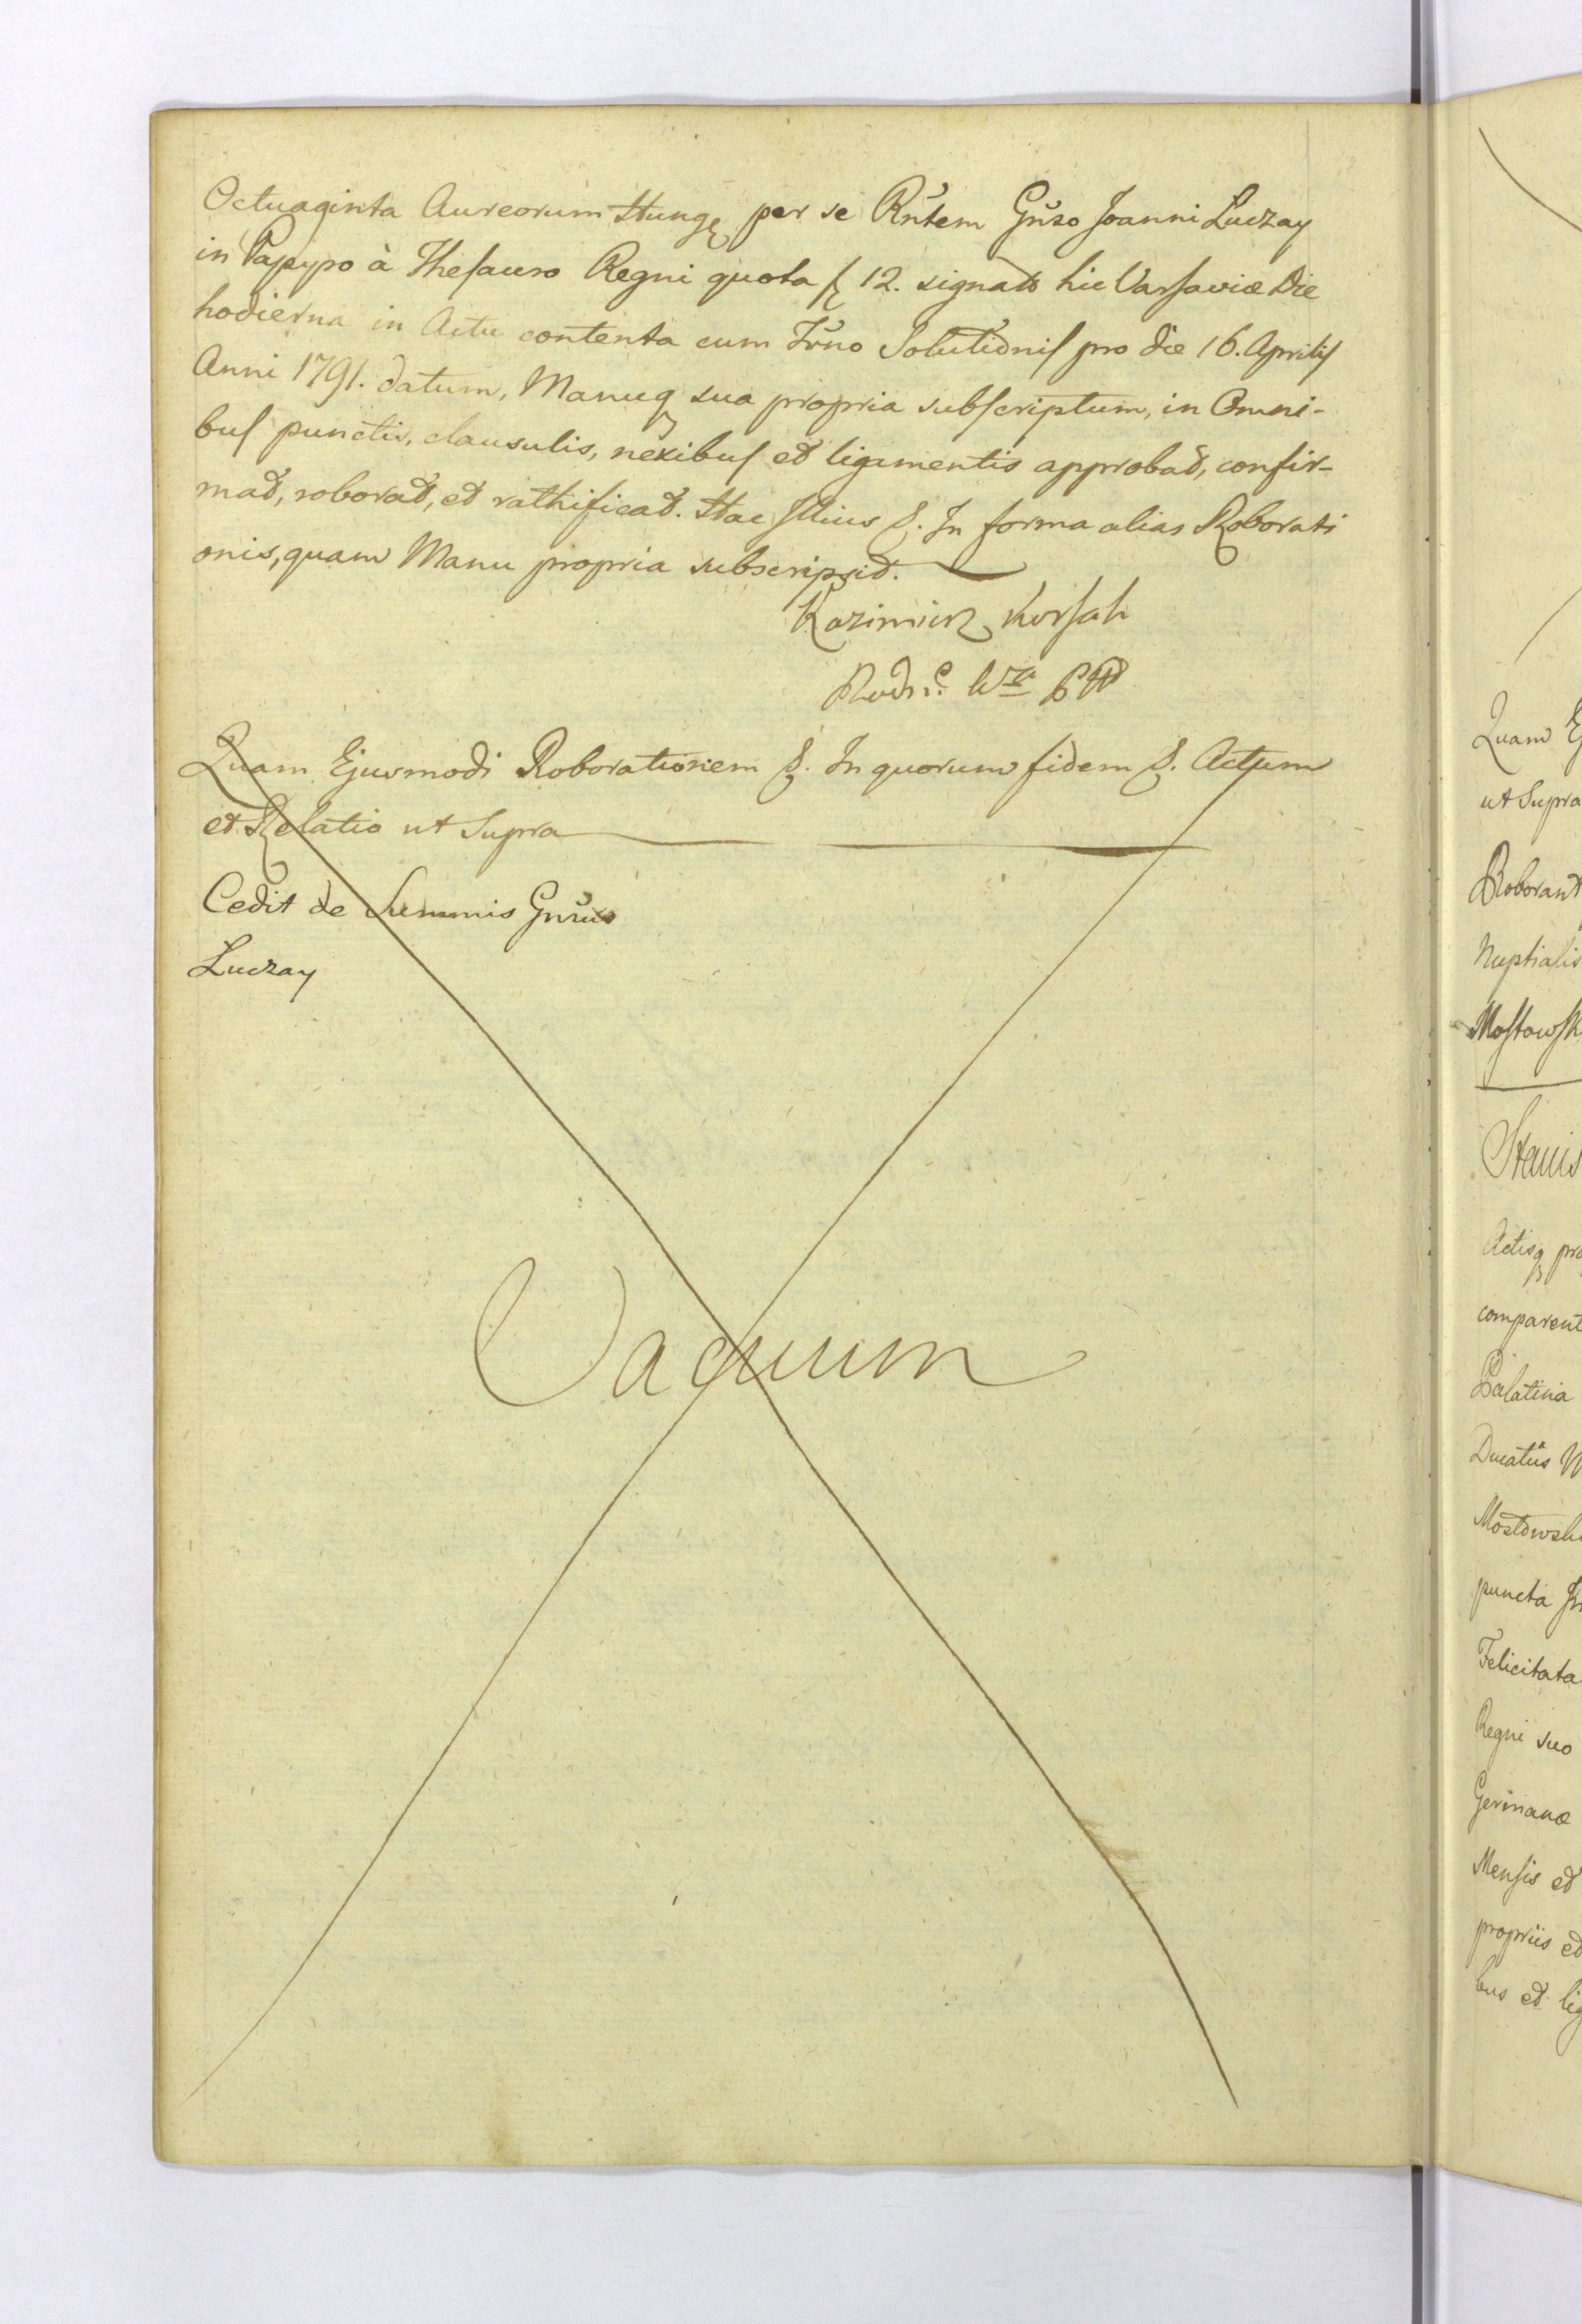 Octuaginta Aureorum Hung. per se Rñtem Gñso Joanni Luczay
in Papyro à Thesauro Regni quota fl 12. signato hic Varsaviæ Die
hodierna in Actu contenta cum Trño Solutiõnis pro die 16. Aprilis
Anni 1791. datum, Manuq sua propria subscriptum, in Omni-
bus punctis, clausulis, nexibus et ligamentis approbat, confir-
mat, roborat, et rathificat. Hac Illius &. In forma alias Roborati
onis, quam Manu propria subscripsit.
Kazimierz Korsak
Quam Ejusmodi Roborationem &. In quorum fidem &. Actum
et Relatio ut Supra
Cedit de Summis Gnrus
Luczay
Vacuum
Quam Ej
ut Supra
Roborant
Nuptialis
Mostowsk
Stanis
Actisq pro
comparent
Palatina
Ducatûs
Mostowsk
puncta
Felicitata
Regni suo
Germanæ
Mensis et
propriis et
bus et lig